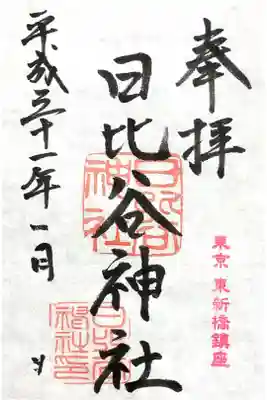 奉拝
東京 東新橋鎮座
日比谷神社
日比谷
神社
平成三十一年一月